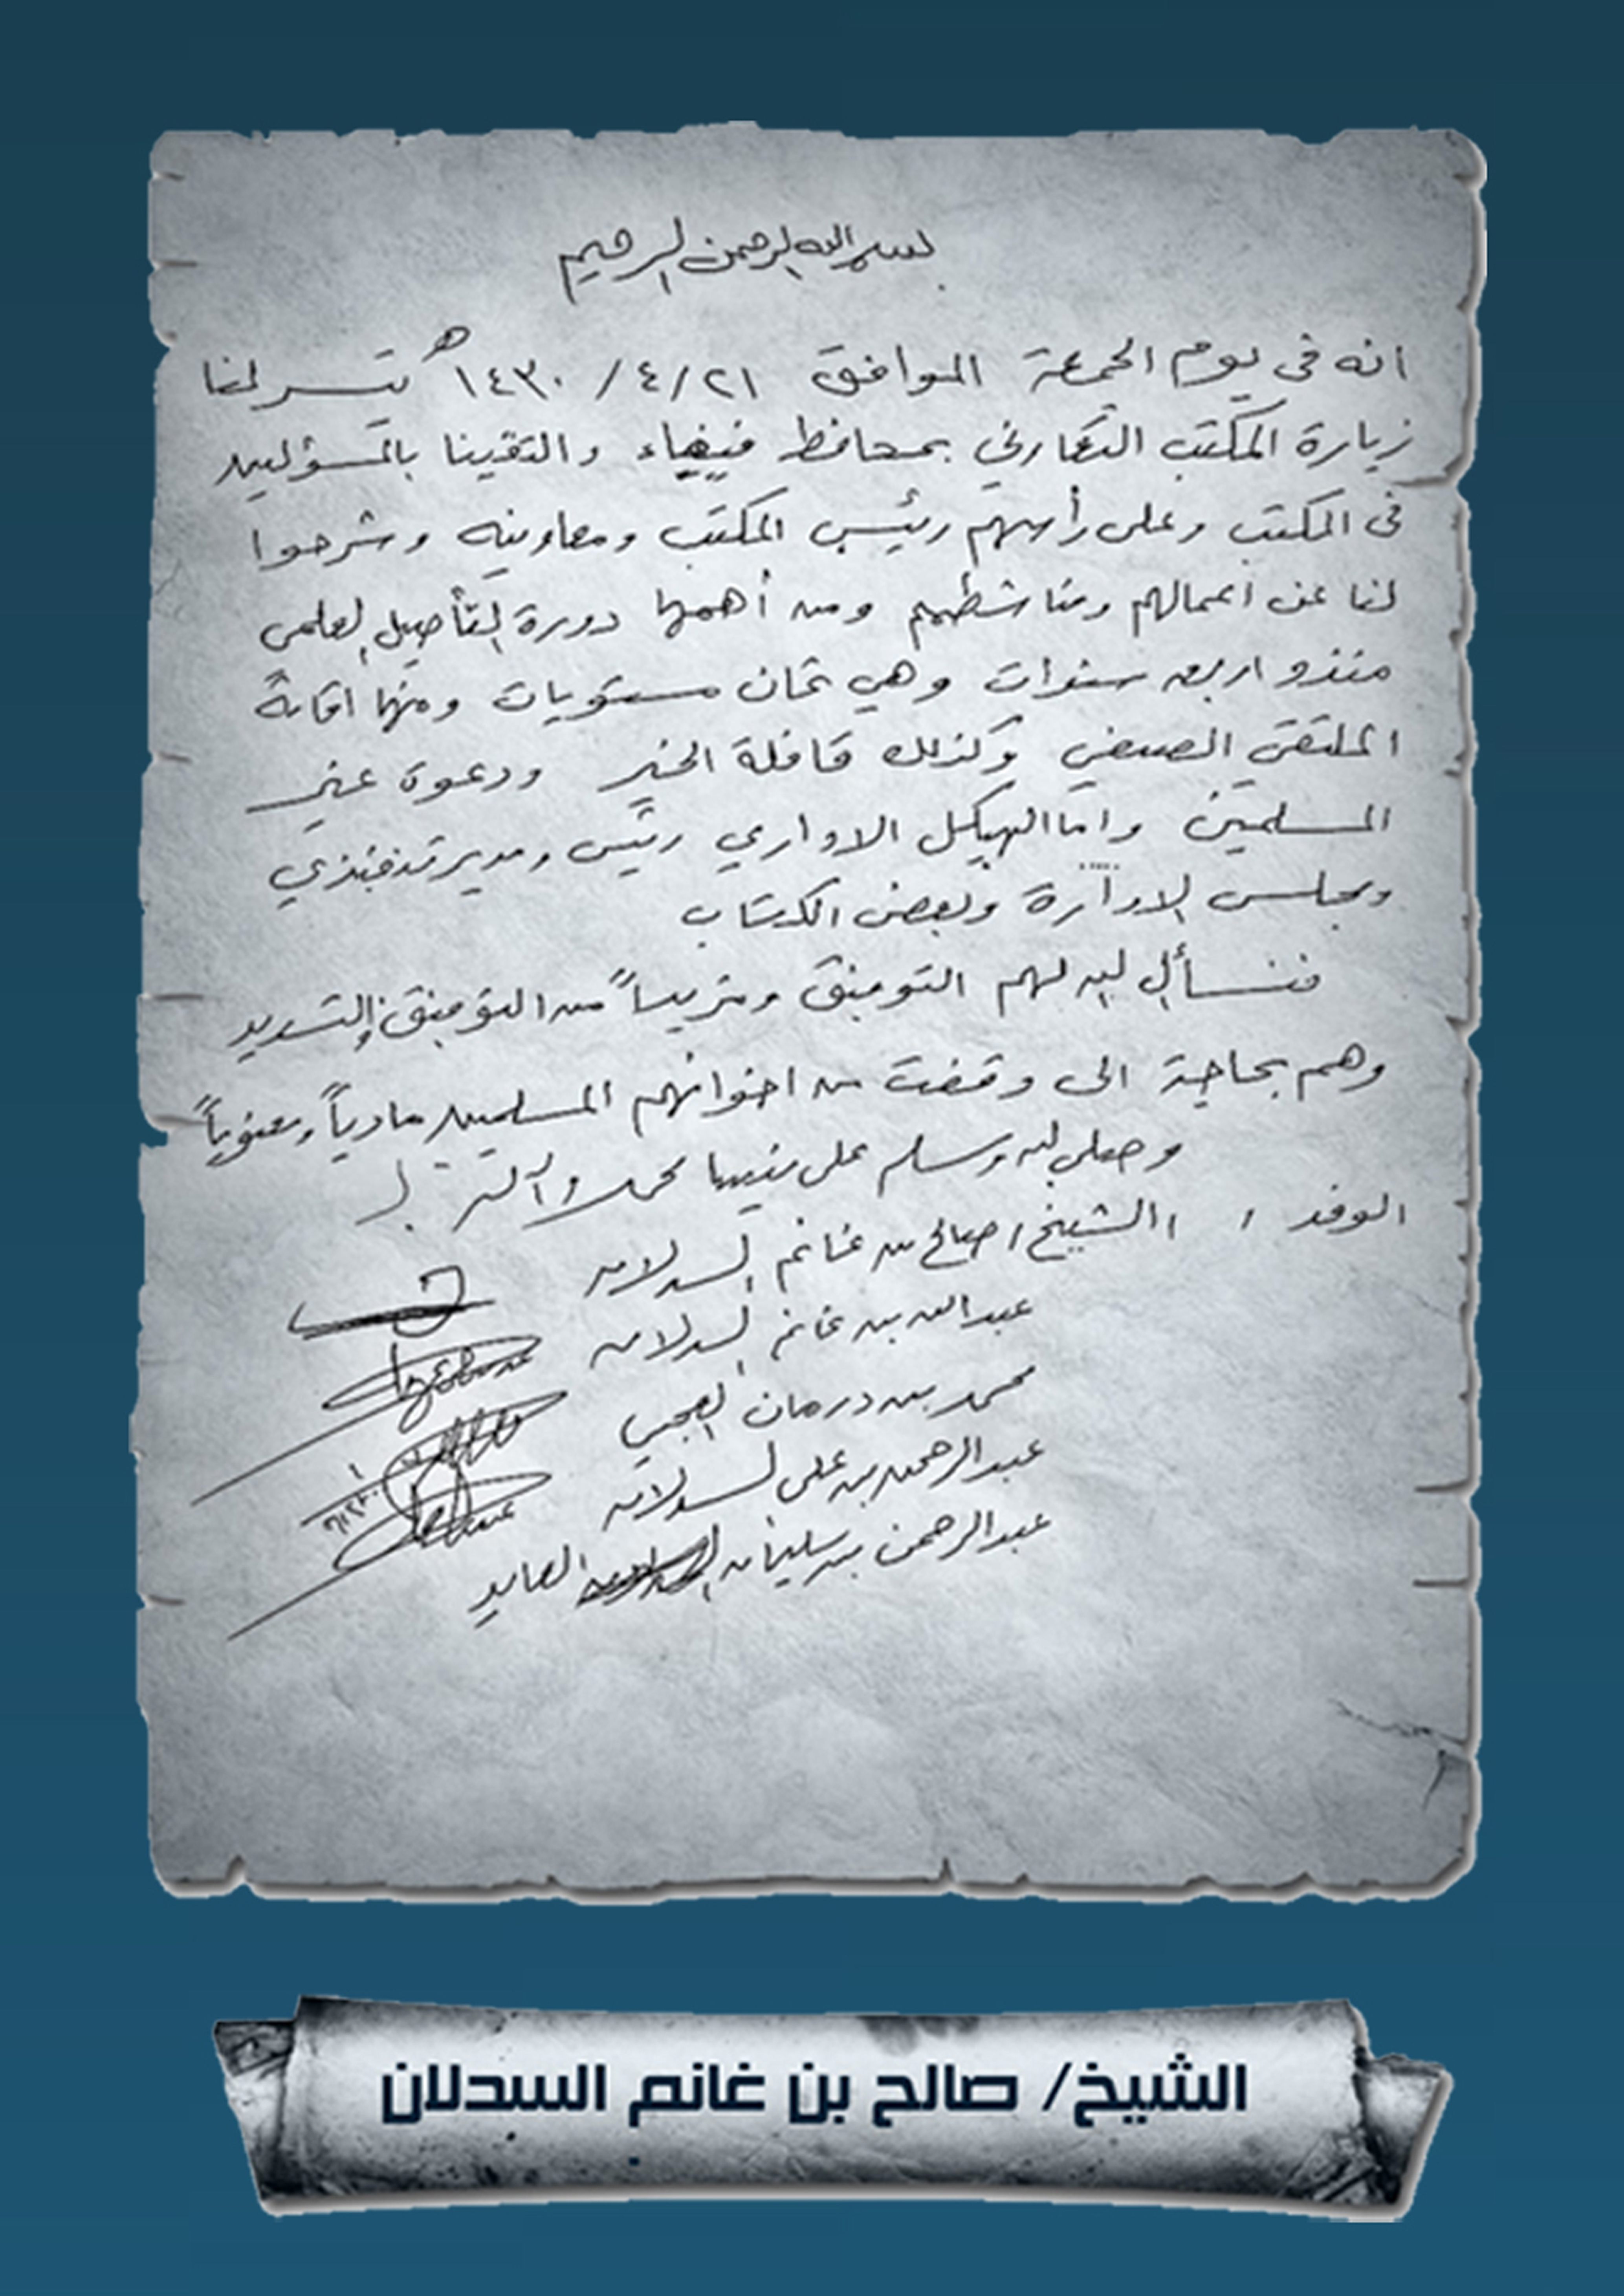 بسم الله الرحمن الرحيم
انه في يوم الجمعة الموافق ٢١/٤/١٤٣٠هـ تيسر لنا
زيارة المكتب التعاوني بمحافظ فيفاء والتقينا بالمسؤلين
في المكتب وعلى رأسهم رئيس المكتب ومعاونيه وشرحوا
لنا عن اعمالهم ومناشطهم ومن أهمها دورة التأصيل العلمي
منذو اربع سنوات وهي ثمان مستويات ومنها اقامة
الملتقى الصيفي وكذلك قافلة الخير ودعوة غير
المسلمين واما الهيكل الاداري رئيس ومدير تنفيذي
ومجلس الادارة وبعض الكتاب
فنسأل الله لهم التوفيق ومزيداً من التوفيق والتسديد
وهم بحاجة الى وقفت من اخوانهم المسلمين مادياً ومعنوياً
وصلى الله وسلم على نبينا محمد وآله
الوفد / الشيخ / صالح بن غانم السدلان
عبدالله بن غانم السدلان
محمد بن درمان العجمي
عبدالرحمن بن علي السدلان
عبدالرحمن بن سليمان العايد
الشيخ/ صالح بن غانم السدلان